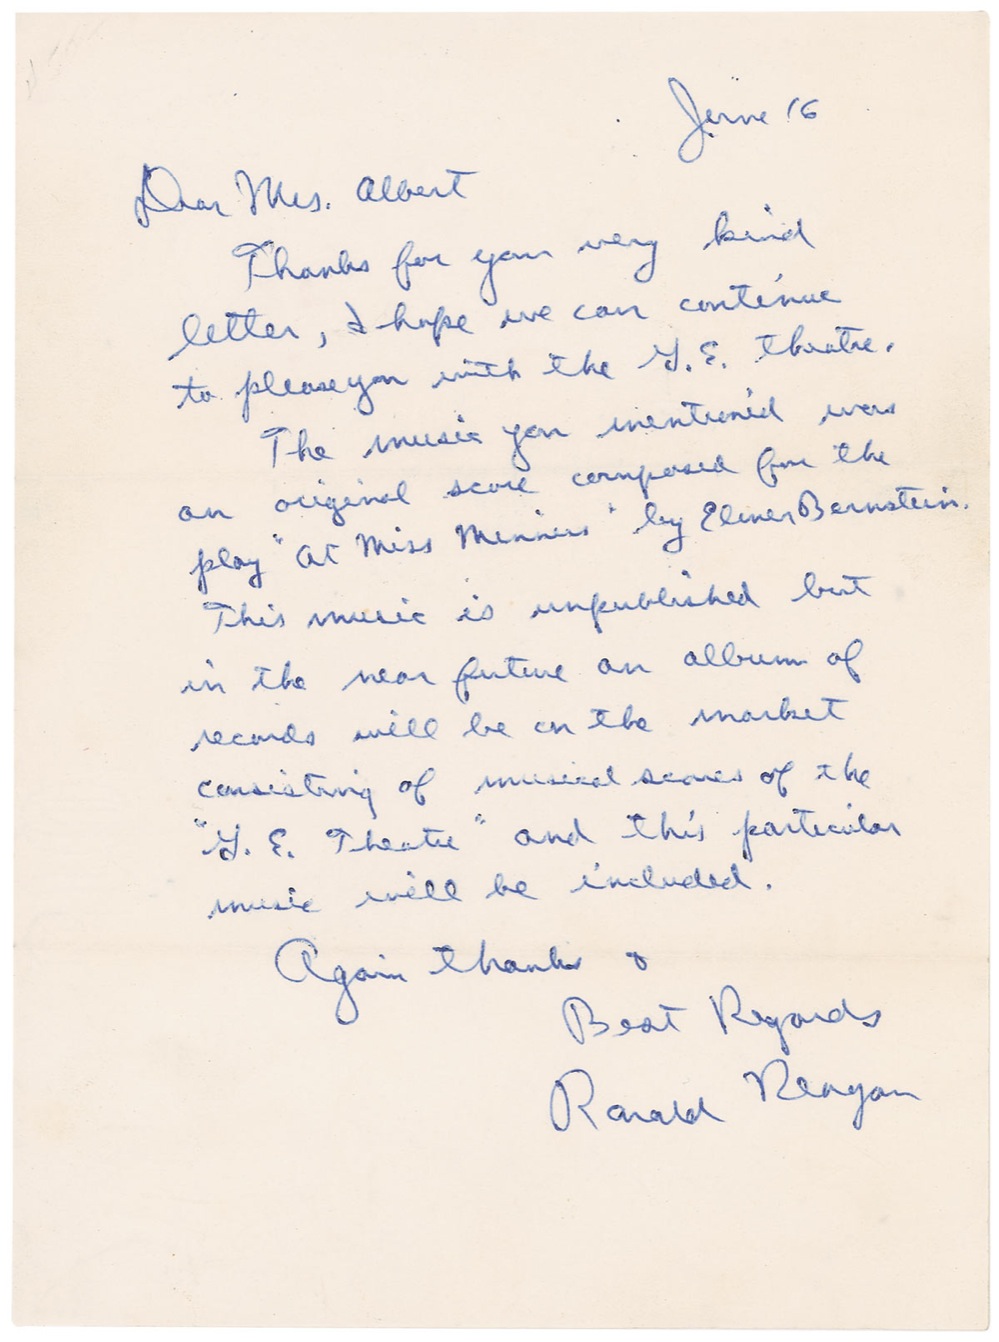 June 16
Dear Mrs. Albert
Thanks for your very kind
letter, I hope we can continue
to please you with the G.E. theatre.
The music you mentioned was
an original score composed for the
play "At Miss Minners" by Elmer Bernstein.
This music is unpublished but
in the near future an album of
records will be on the market
consisting of musical scores of the
"G.E. Theatre" and this particular
music will be included.
Again thanks &
Best Regards
Ronald Reagan